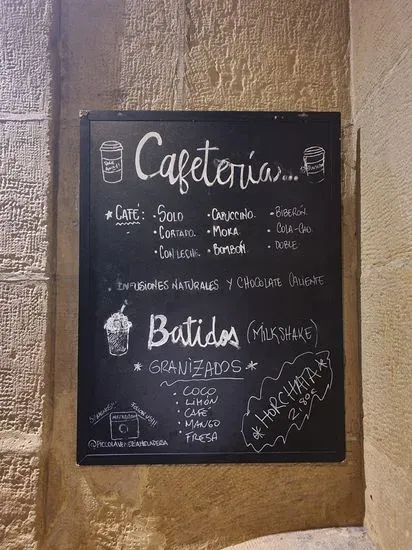 Cafetería...
* CAFÉ: • SOLO • CAPUCCINO. • BIBERÓN.
• CORTADO. • MOKA. • COLA-CAO.
• CON LECHE. • BOMBÓN. • DOBLE
• INFUSIONES NATURALES Y CHOCOLATE CALIENTE
Batidos (MILKSHAKE)
* GRANIZADOS *
• COCO
• LIMÓN
• CAFÉ
• MANGO
• FRESA
* HORCHATA *
2,80€
SÍGUENOS!
FOLLOW US!!
INSTAGRAM